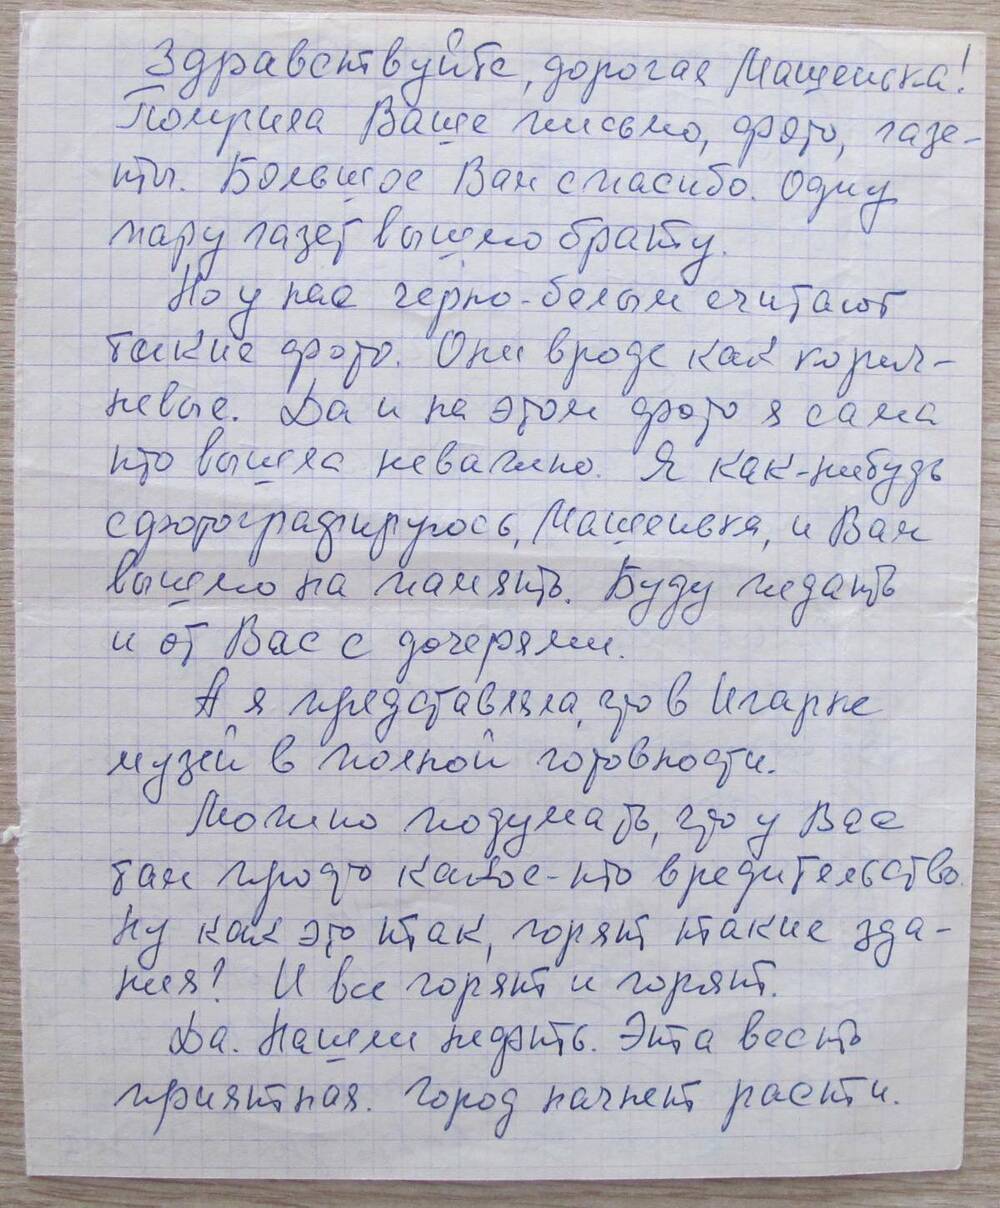 Здравствуйте, дорогая Машенька!
Получила Ваше письмо, фото, газе-
ты. Большое Вам спасибо. Одну
пару газет вышлю брату.
Но у нас черно-белым считают
такие фото. Они вроде как корич-
невые. Да и на этом фото я сама
то вышла неважно. Я как-нибудь
сфотографируюсь, Машенька, и Вам
вышлю на память. Буду ждать
и от Вас с дочерями.
А я представляла, что в Игарке
музей в полной готовности.
Можно подумать, что у Вас
там просто какое-то вредительство.
Ну как это так, горят такие зда-
ния? И все горят и горят.
Да. Нашли нефть. Эта весть
приятная. Город начнет расти.